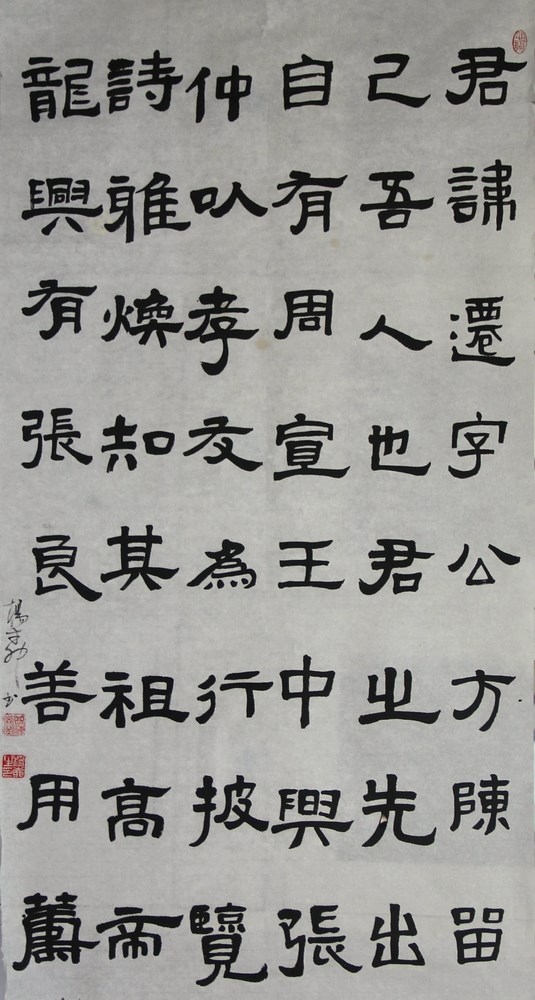 君諱遷字公方陳留
己吾人也君之先出
自有周宣王中興張
仲以孝友為行披覽
詩雅煥知其祖高帝
龍興有張良善用籌